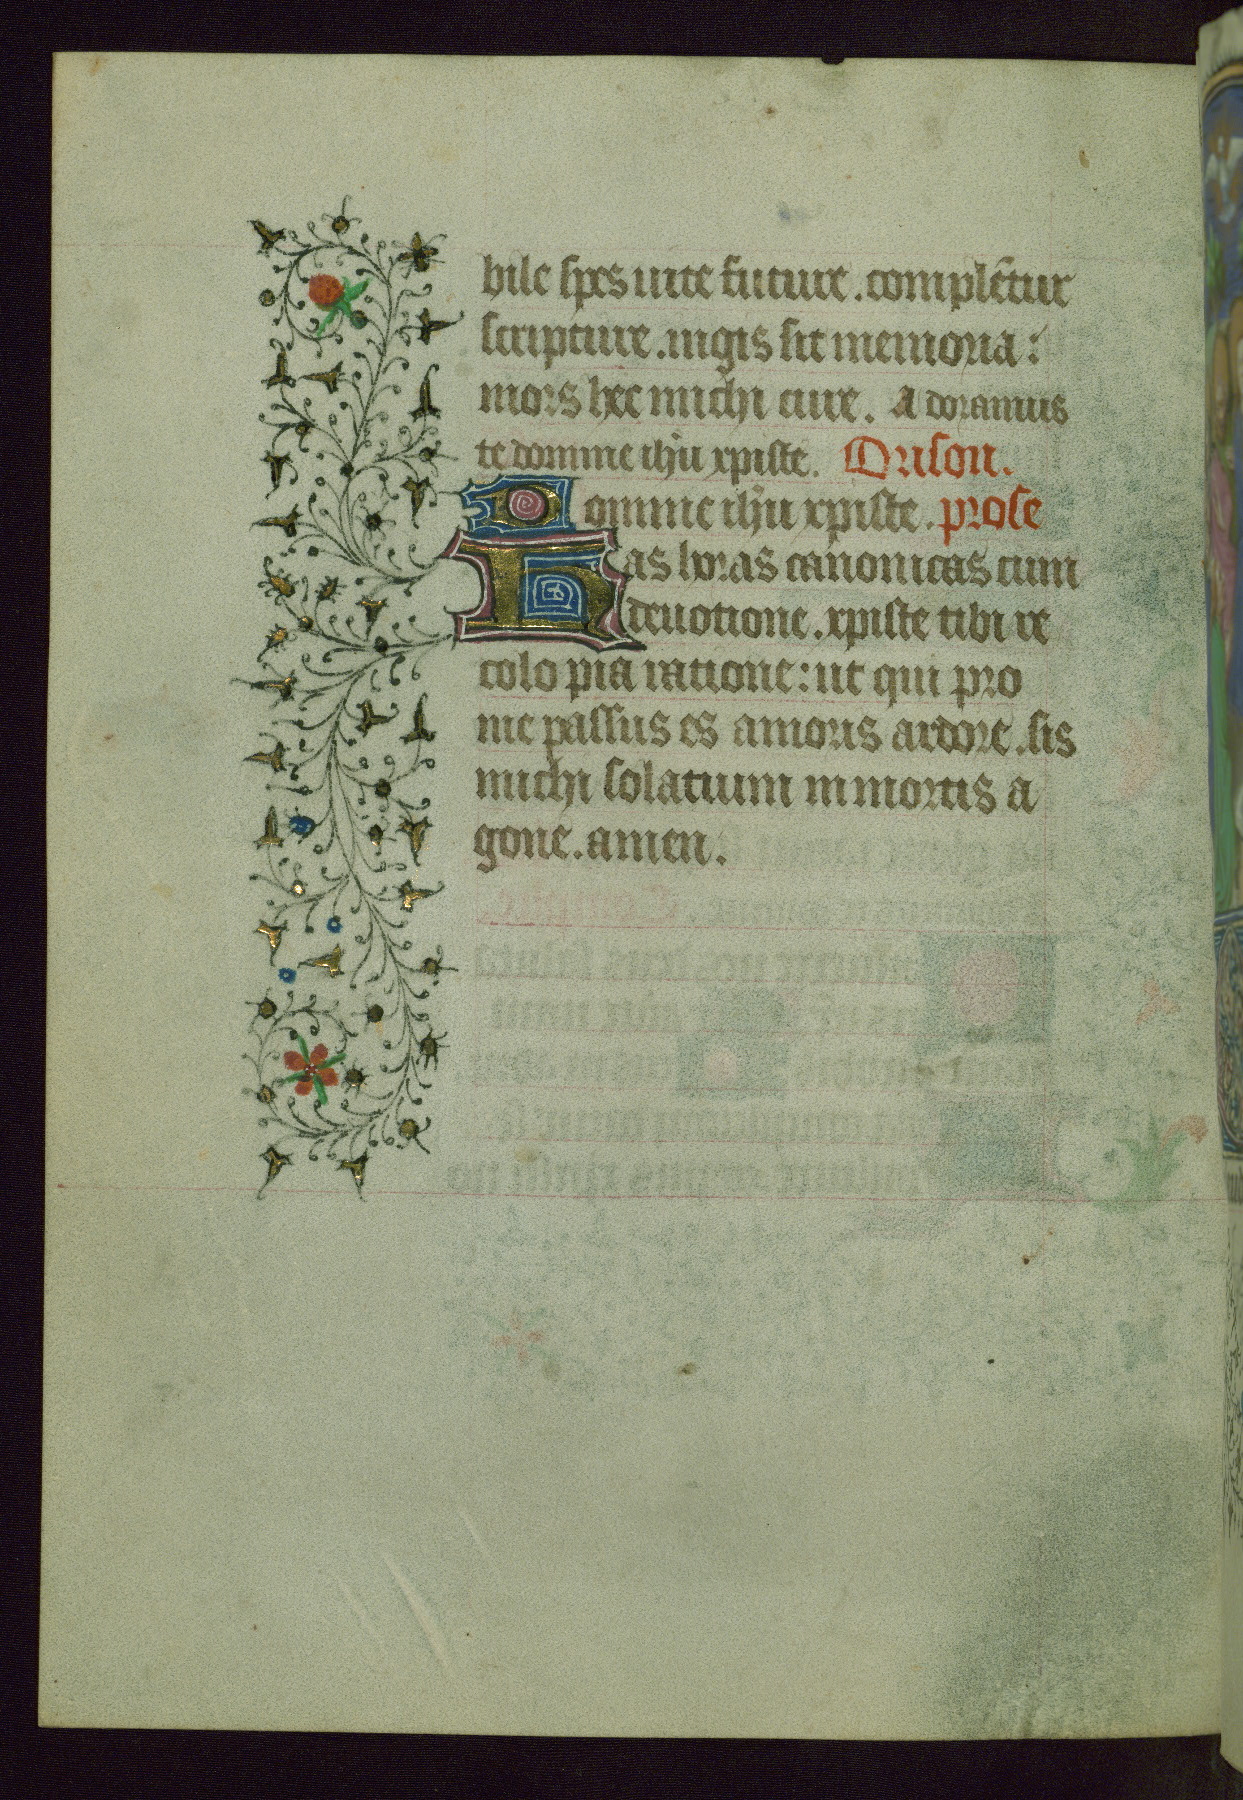 bile spes uite future. complētur
scripture. iugis sit memoria:
mors hec michi cure. Adoramus
te domine ihū xpiste. Orison.
Domine ihū xpiste. prose
Has horas canonicas cum
deuotione. xpiste tibi re
colo pia ratione: ut qui pro
me passus es amoris ardore. sis
michi solatium in mortis a
gone. amen.